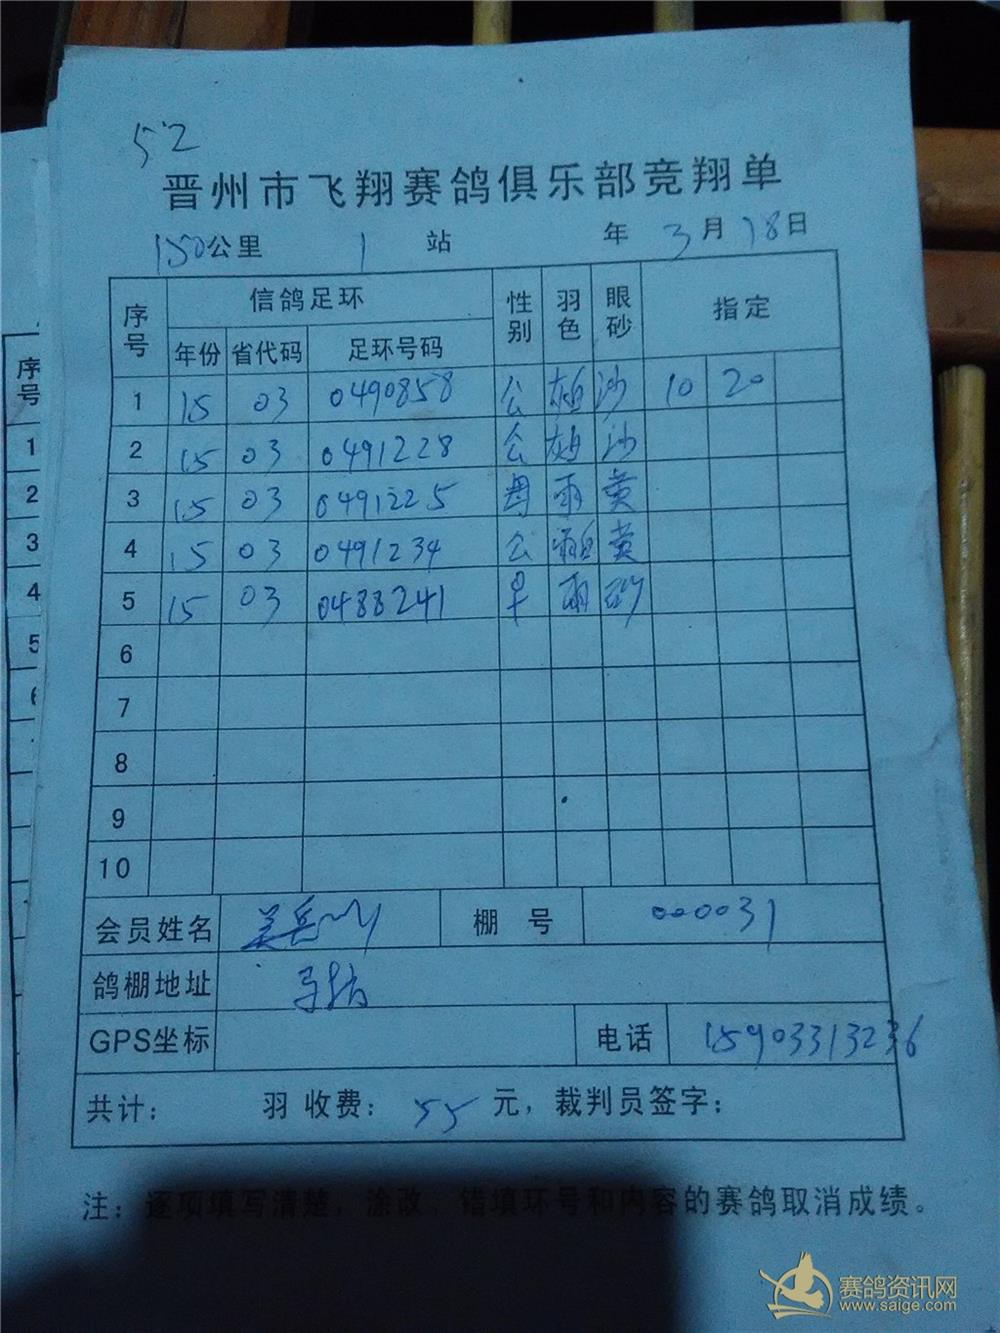 52
晋州市飞翔赛鸽俱乐部竞翔单
150公里 1 站 年 3 月 18 日
序号 信鸽足环 性别 羽色 眼砂 指定
年份 省代码 足环号码
1 15 03 0490858 公 沙 10 20
2 15 03 0491228 公 沙
3 15 03 0491225 母 雨 黄
4 15 03 0491234 公 黄
5 15 03 0488241 雨 砂
6
7
8
9
10
会员姓名 棚 号 000031
鸽棚地址
GPS坐标 电话 15903313236
共计: 羽 收费: 55 元, 裁判员签字:
注: 逐项填写清楚, 涂改、错填环号和内容的赛鸽取消成绩。
序号
1
2
3
4
5
6
赛鸽资讯网
www.saige.com